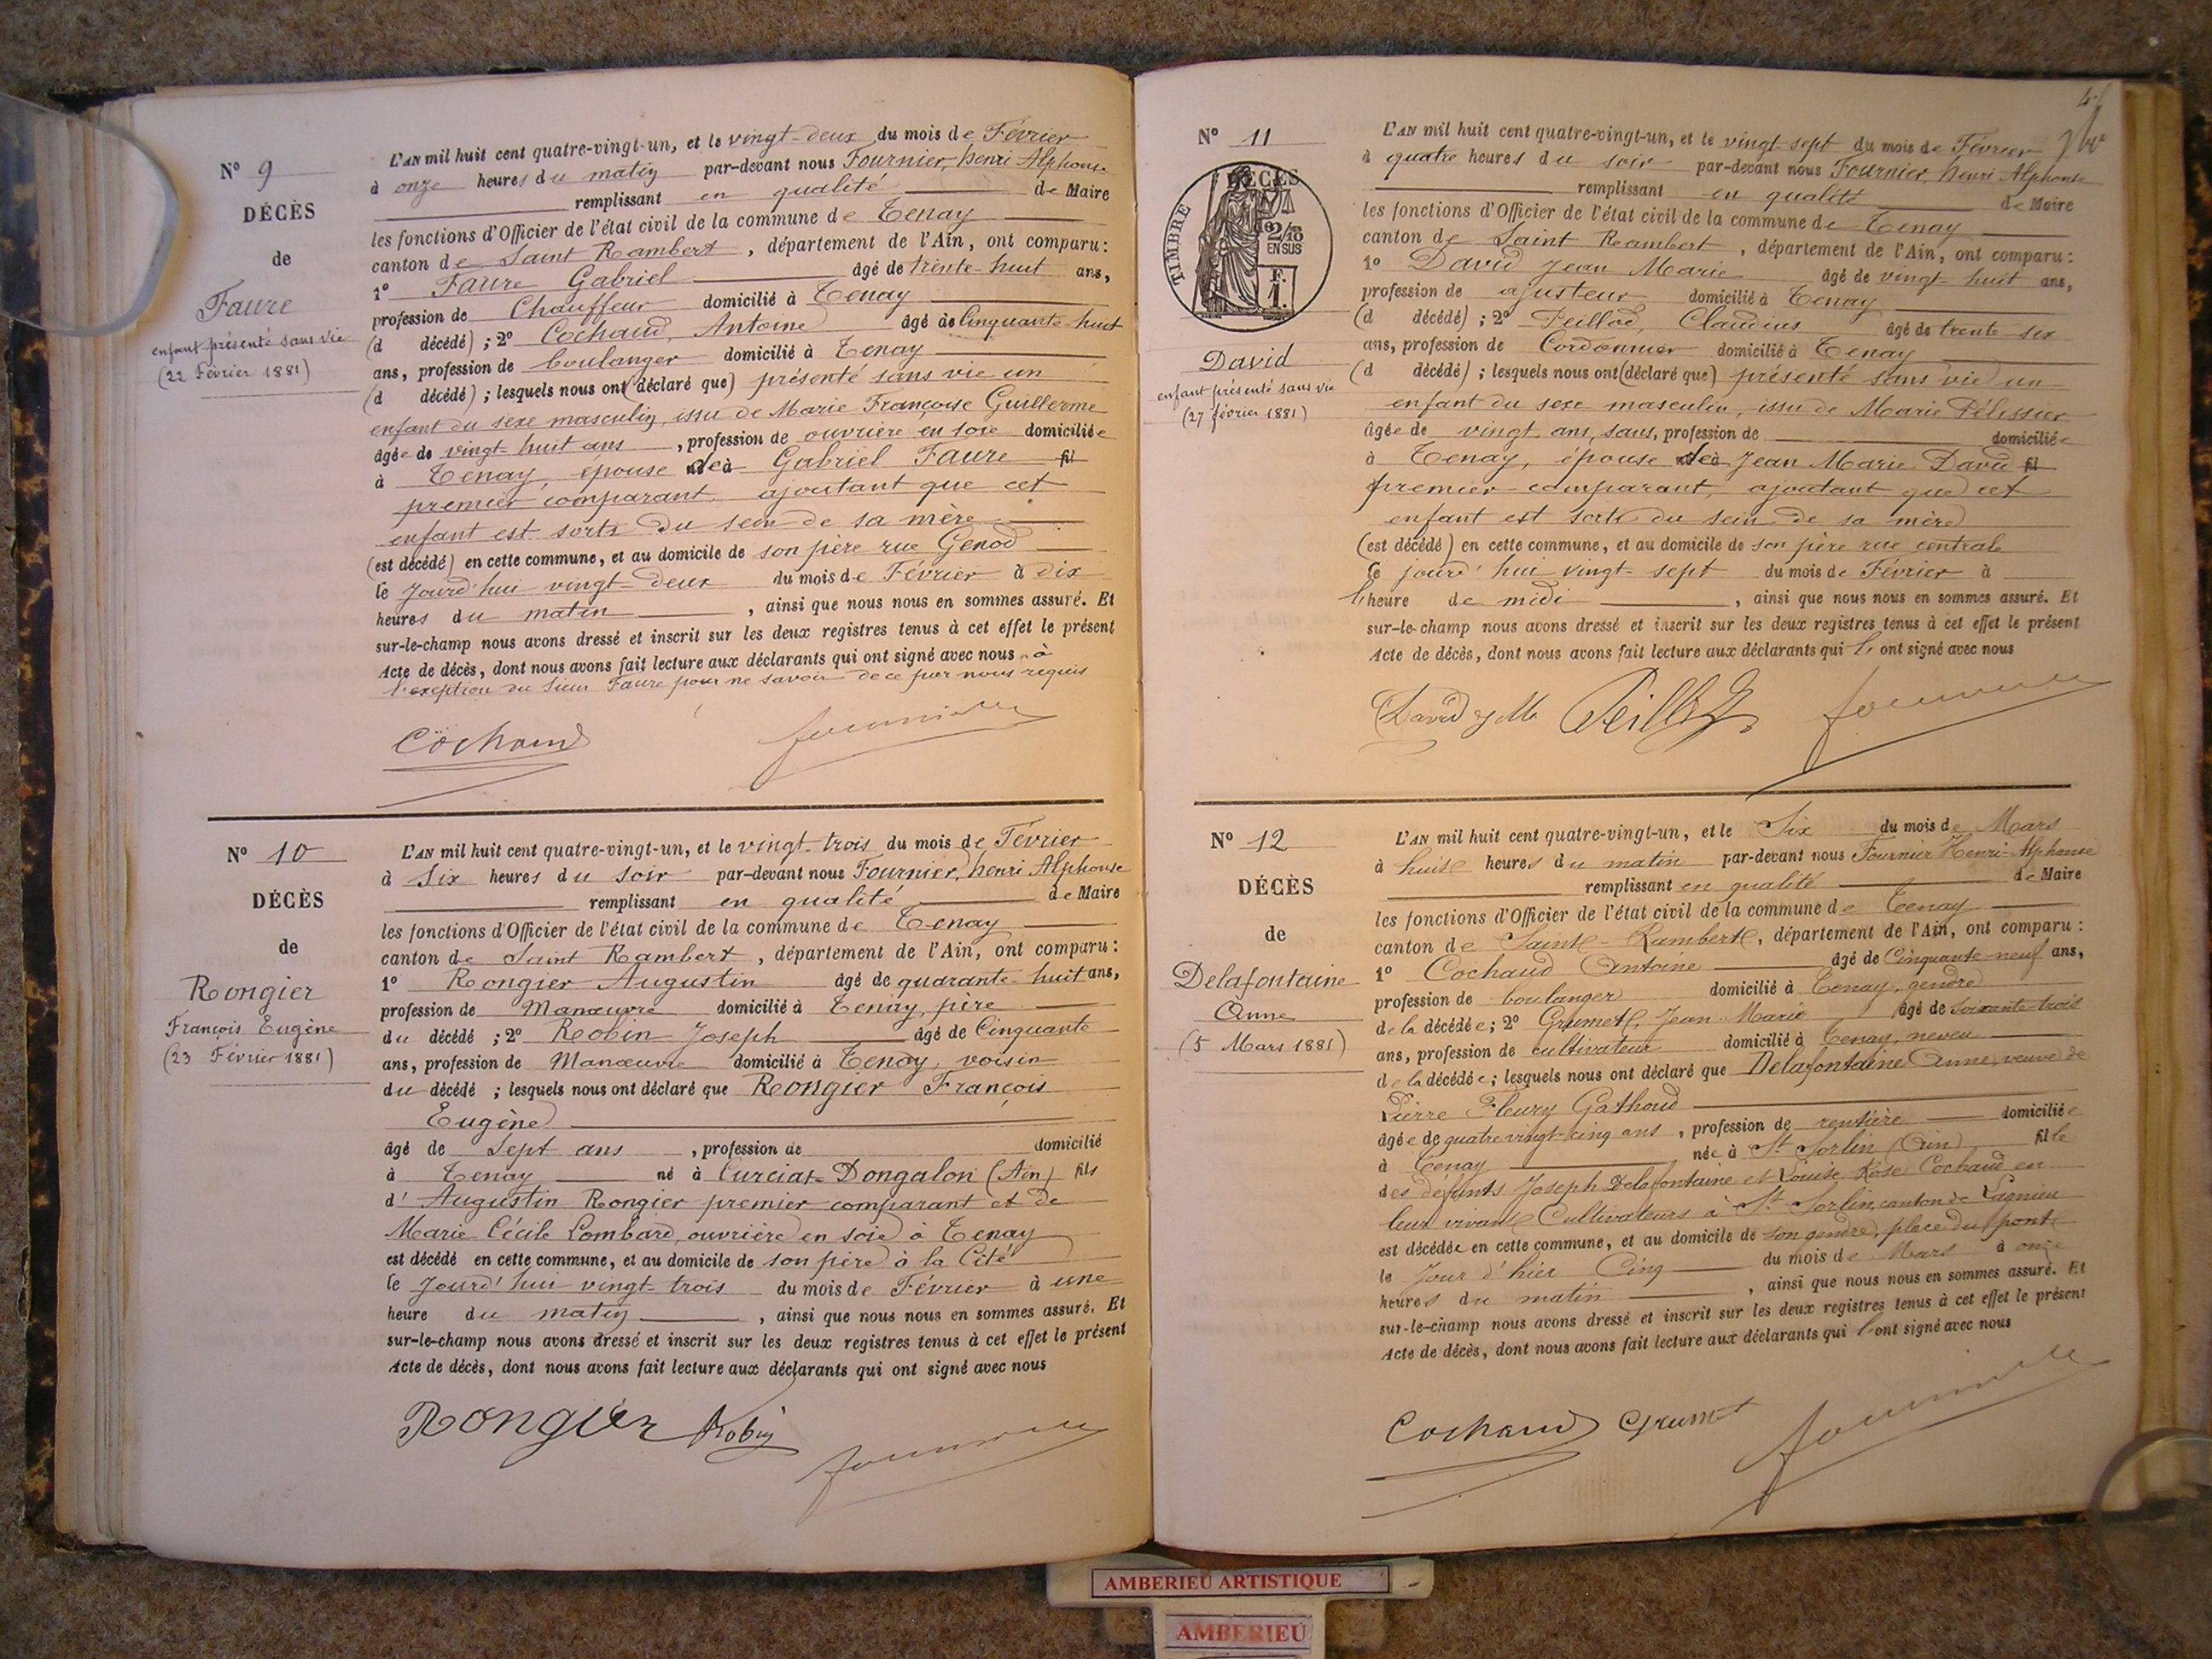 N° 9
DÉCÈS
de
Faure
enfant présenté sans vie
(22 Février 1881)
L'AN mil huit cent quatre-vingt-un, et le vingt-deux du mois de Février
à onze heures du matin par-devant nous Fournier, henri Alphonse
remplissant en qualité de Maire
les fonctions d'Officier de l'état civil de la commune de Tenay
canton de Saint Rambert, département de l'Ain, ont comparu:
1° Faure Gabriel âgé de trente-huit ans,
profession de Chauffeur domicilié à Tenay
(d décédé) ; 2° Cochaud, Antoine âgé de Cinquante-huit
ans, profession de boulanger domicilié à Tenay
(d décédé) ; lesquels nous ont (déclaré que) présenté sans vie un
enfant du sexe masculin, issu de Marie Françoise Guillerme
âgée de vingt-huit ans, profession de ouvrière en soie domiciliée
à Tenay, épouse de Gabriel Faure fil
premier comparant, ajoutant que cet
enfant est sorti du sein de sa mère
(est décédé) en cette commune, et au domicile de son père rue Genod
le Jourd'hui vingt-deux du mois de Février à dix
heures du matin, ainsi que nous nous en sommes assuré. Et
sur-le-champ nous avons dressé et inscrit sur les deux registres tenus à cet effet le présent
Acte de décès, dont nous avons fait lecture aux déclarants qui ont signé avec nous à
l'exception du Sieur Faure pour ne savoir de ce par nous requis
Cochaud Fournier
N° 10
DÉCÈS
de
Rongier
François Eugène
(23 Février 1881)
L'AN mil huit cent quatre-vingt-un, et le vingt-trois du mois de Février
à Six heures du soir par-devant nous Fournier, henri Alphonse
remplissant en qualité de Maire
les fonctions d'Officier de l'état civil de la commune de Tenay
canton de Saint Rambert, département de l'Ain, ont comparu:
1° Rongier Augustin âgé de quarante-huit ans,
profession de Manœuvre domicilié à Tenay, père
du décédé ; 2° Robin Joseph âgé de Cinquante
ans, profession de Manœuvre domicilié à Tenay, voisin
du décédé ; lesquels nous ont déclaré que Rongier François
Eugène
âgé de Sept ans, profession de domicilié
à Tenay né à Curciat-Dongalon (Ain) fils
d'Augustin Rongier premier comparant et de
Marie Cécile Lombard, ouvrière en soie à Tenay
est décédé en cette commune, et au domicile de son père à la Cité
le Jourd'hui vingt-trois du mois de Février à une
heure du matin, ainsi que nous nous en sommes assuré. Et
sur-le-champ nous avons dressé et inscrit sur les deux registres tenus à cet effet le présent
Acte de décès, dont nous avons fait lecture aux déclarants qui ont signé avec nous
Rongier Robin Fournier
N° 11
DÉCÈS
de
TIMBRE
2/10
EN SUS
F.
1.
David
enfant présenté sans vie
(27 février 1881)
L'AN mil huit cent quatre-vingt-un, et le vingt-sept du mois de Février
à quatre heures du soir par-devant nous Fournier, henri Alphonse
remplissant en qualité de Maire
les fonctions d'Officier de l'état civil de la commune de Tenay
canton de Saint Rambert, département de l'Ain, ont comparu:
1° David Jean Marie âgé de vingt-huit ans,
profession de ajusteur domicilié à Tenay
(d décédé) ; 2° Peillod, Claudius âgé de trente-six
ans, profession de Cordonnier domicilié à Tenay
(d décédé) ; lesquels nous ont (déclaré que) présenté sans vie un
enfant du sexe masculin, issu de Marie Pélissier
âgée de vingt ans, sans, profession de domiciliée
à Tenay, épouse de Jean Marie David fil
premier comparant, ajoutant que cet
enfant est sorti du sein de sa mère
(est décédé) en cette commune, et au domicile de son père rue centrale
le jourd'hui vingt-sept du mois de Février à
l'heure de midi, ainsi que nous nous en sommes assuré. Et
sur-le-champ nous avons dressé et inscrit sur les deux registres tenus à cet effet le présent
Acte de décès, dont nous avons fait lecture aux déclarants qui l'ont signé avec nous
David J M Peillod Fournier
N° 12
DÉCÈS
de
Delafontaine
Anne
(5 Mars 1881)
L'AN mil huit cent quatre-vingt-un, et le Six du mois de Mars
à huit heures du matin par-devant nous Fournier Henri-Alphonse
remplissant en qualité de Maire
les fonctions d'Officier de l'état civil de la commune de Tenay
canton de Saint-Rambert, département de l'Ain, ont comparu:
1° Cochaud Antoine âgé de Cinquante-neuf ans,
profession de boulanger domicilié à Tenay, gendre
de la décédée; 2° Grumet, Jean-Marie âgé de soixante-trois
ans, profession de cultivateur domicilié à Tenay, neveu
de la décédée; lesquels nous ont déclaré que Delafontaine Anne, veuve de
Pierre Fleury Gathoud
âgée de quatre vingt-cinq ans, profession de rentière domiciliée
à Tenay née à St Sorlin (Ain) fille
des défunts Joseph Delafontaine et Louise Rose Cochaud en
leur vivant Cultivateurs à St Sorlin, canton de Lagnieu
est décédée en cette commune, et au domicile de son gendre, place du pont
le Jour d'hier Cinq du mois de Mars à onze
heures du matin, ainsi que nous nous en sommes assuré. Et
sur-le-champ nous avons dressé et inscrit sur les deux registres tenus à cet effet le présent
Acte de décès, dont nous avons fait lecture aux déclarants qui l'ont signé avec nous
Cochaud Grumet Fournier
AMBERIEU ARTISTIQUE
AMBERIEU